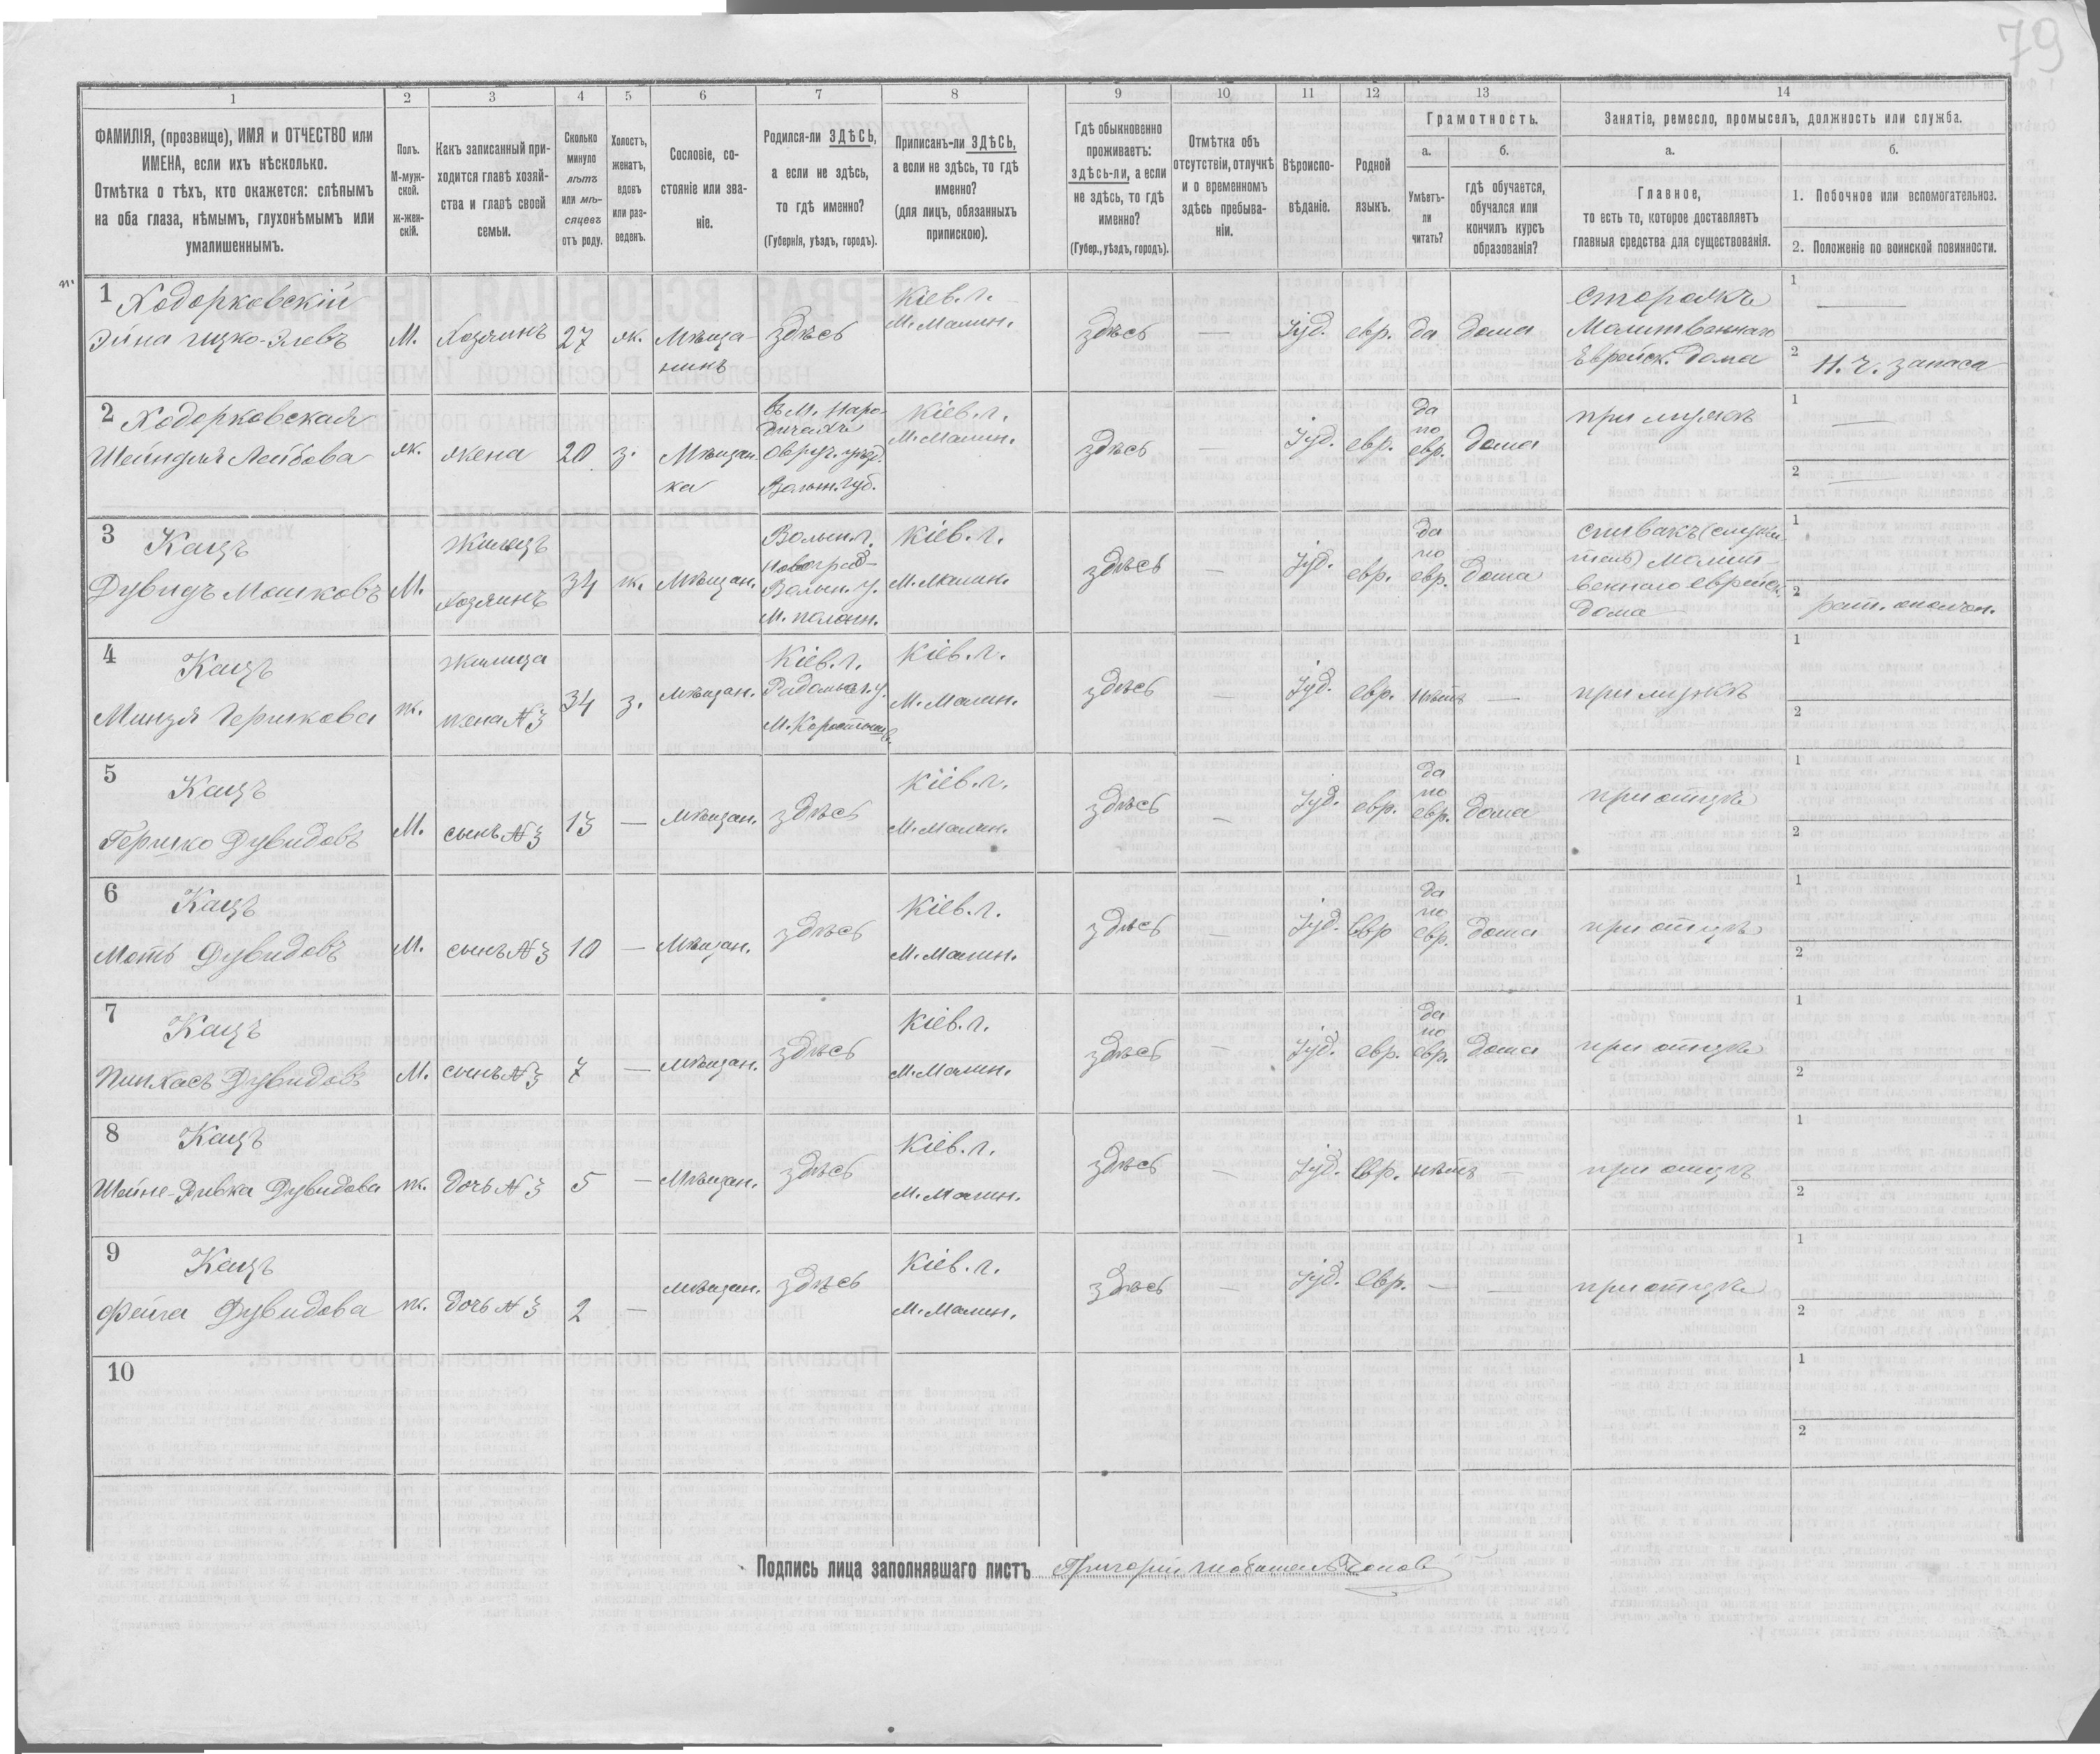 79
1 2 3 4 5 6 7 8 9 10 11 12 13 14
ФАМИЛІЯ, (прозвище), ИМЯ и ОТЧЕСТВО или
ИМЕНА, если ихъ нѣсколько.
Отмѣтка о тѣхъ, кто окажется: слѣпымъ
на оба глаза, нѣмымъ, глухонѣмымъ или
умалишеннымъ.
Полъ.
М-муж-
ской.
ж-жен-
скій.
Какъ записанный при-
ходится главѣ хозяй-
ства и главѣ своей
семьи.
Сколько
минуло
лѣтъ
или мѣ-
сяцевъ
отъ роду.
Холостъ,
женатъ,
вдовъ
или раз-
веденъ.
Сословіе, со-
стояніе или зва-
ніе.
Родился-ли ЗДѢСЬ,
а если не здѣсь,
то гдѣ именно?
(Губернія, уѣздъ, городъ).
Приписанъ-ли ЗДѢСЬ,
а если не здѣсь, то гдѣ
именно?
(для лицъ, обязанныхъ
припискою).
Гдѣ обыкновенно
проживаетъ:
здѣсь-ли, а если
не здѣсь, то гдѣ
именно?
(Губер., уѣздъ, городъ).
Отмѣтка объ
отсутствіи, отлучкѣ
и о временномъ
здѣсь пребыва-
ніи.
Вѣроиспо-
вѣданіе.
Родной
языкъ.
Грамотность.
а.
Умѣетъ-
ли
читать?
б.
гдѣ обучается,
обучался или
кончилъ курсъ
образованія?
Занятіе, ремесло, промыселъ, должность или служба.
а.
Главное,
то есть то, которое доставляетъ
главныя средства для существованія.
б.
1. Побочное или вспомогательное.
2. Положеніе по воинской повинности.
1 Ходорковскій
М. Хозяинъ 27 ж. Мѣща-
нинъ
здѣсь
Кіев. г.
М. Малин.
здѣсь — Іуд. евр. да дома
сторожъ
Молитвеннаго
Еврейск. дома
1 —
2 Н. ч. запаса
2 Ходорковская
Шейндля Лейбова
ж. жена 20 з. Мѣщан.
ка
въ М. Наро-
дичахъ
Овруч. уѣзд.
Волын. губ.
Кіев. г.
М. Малин.
здѣсь — Іуд. евр. да
по
евр. дома
при мужѣ
1 —
2 —
3 Кацъ
Дувидъ Мошковъ
М. жилецъ
хозяинъ
34 ж. Мѣщан.
Волын. г.
Новоград-
Волын. у.
М. Полонн.
Кіев. г.
М. Малин.
здѣсь — Іуд. евр. да
по
евр. дома
спивакъ (служи-
тель) молит-
веннаго еврейск.
дома
1
2 рат. ополчен.
4 Кацъ
Минця Гершкова
ж. жилица
жена №3
34 з. Мѣщан.
Кіев. г.
Радомысл. у.
Кіев. г.
М. Малин.
здѣсь — Іуд. евр. нѣтъ —
при мужѣ
1
2
5 Кацъ
Гершко Дувидовъ
М. сынъ №3 13 — Мѣщан. здѣсь
Кіев. г.
М. Малин.
здѣсь — Іуд. евр. да
по
евр. дома
при отцѣ
1
2
6 Кацъ
Моть Дувидовъ
М. сынъ №3 10 — Мѣщан. здѣсь
Кіев. г.
М. Малин.
здѣсь — Іуд. евр да
по
евр. дома
при отцѣ
1
2
7 Кацъ
Пинхасъ Дувидовъ
М. сынъ №3 7 — Мѣщан. здѣсь
Кіев. г.
М. Малин.
здѣсь — Іуд. евр. да
по
евр. дома
при отцѣ
1
2
8 Кацъ
Шейне-Ривка Дувидова
ж. дочь №3 5 — Мѣщан. здѣсь
Кіев. г.
М. Малин.
здѣсь — Іуд. евр. нѣтъ —
при отцѣ
1
2
9 Кацъ
Фейга Дувидова
ж. дочь №3 2 — Мѣщан. здѣсь
Кіев. г.
М. Малин.
здѣсь — Іуд. евр. — —
при отцѣ
1
2
10
1
2
Подпись лица заполнявшаго листъ Григорій